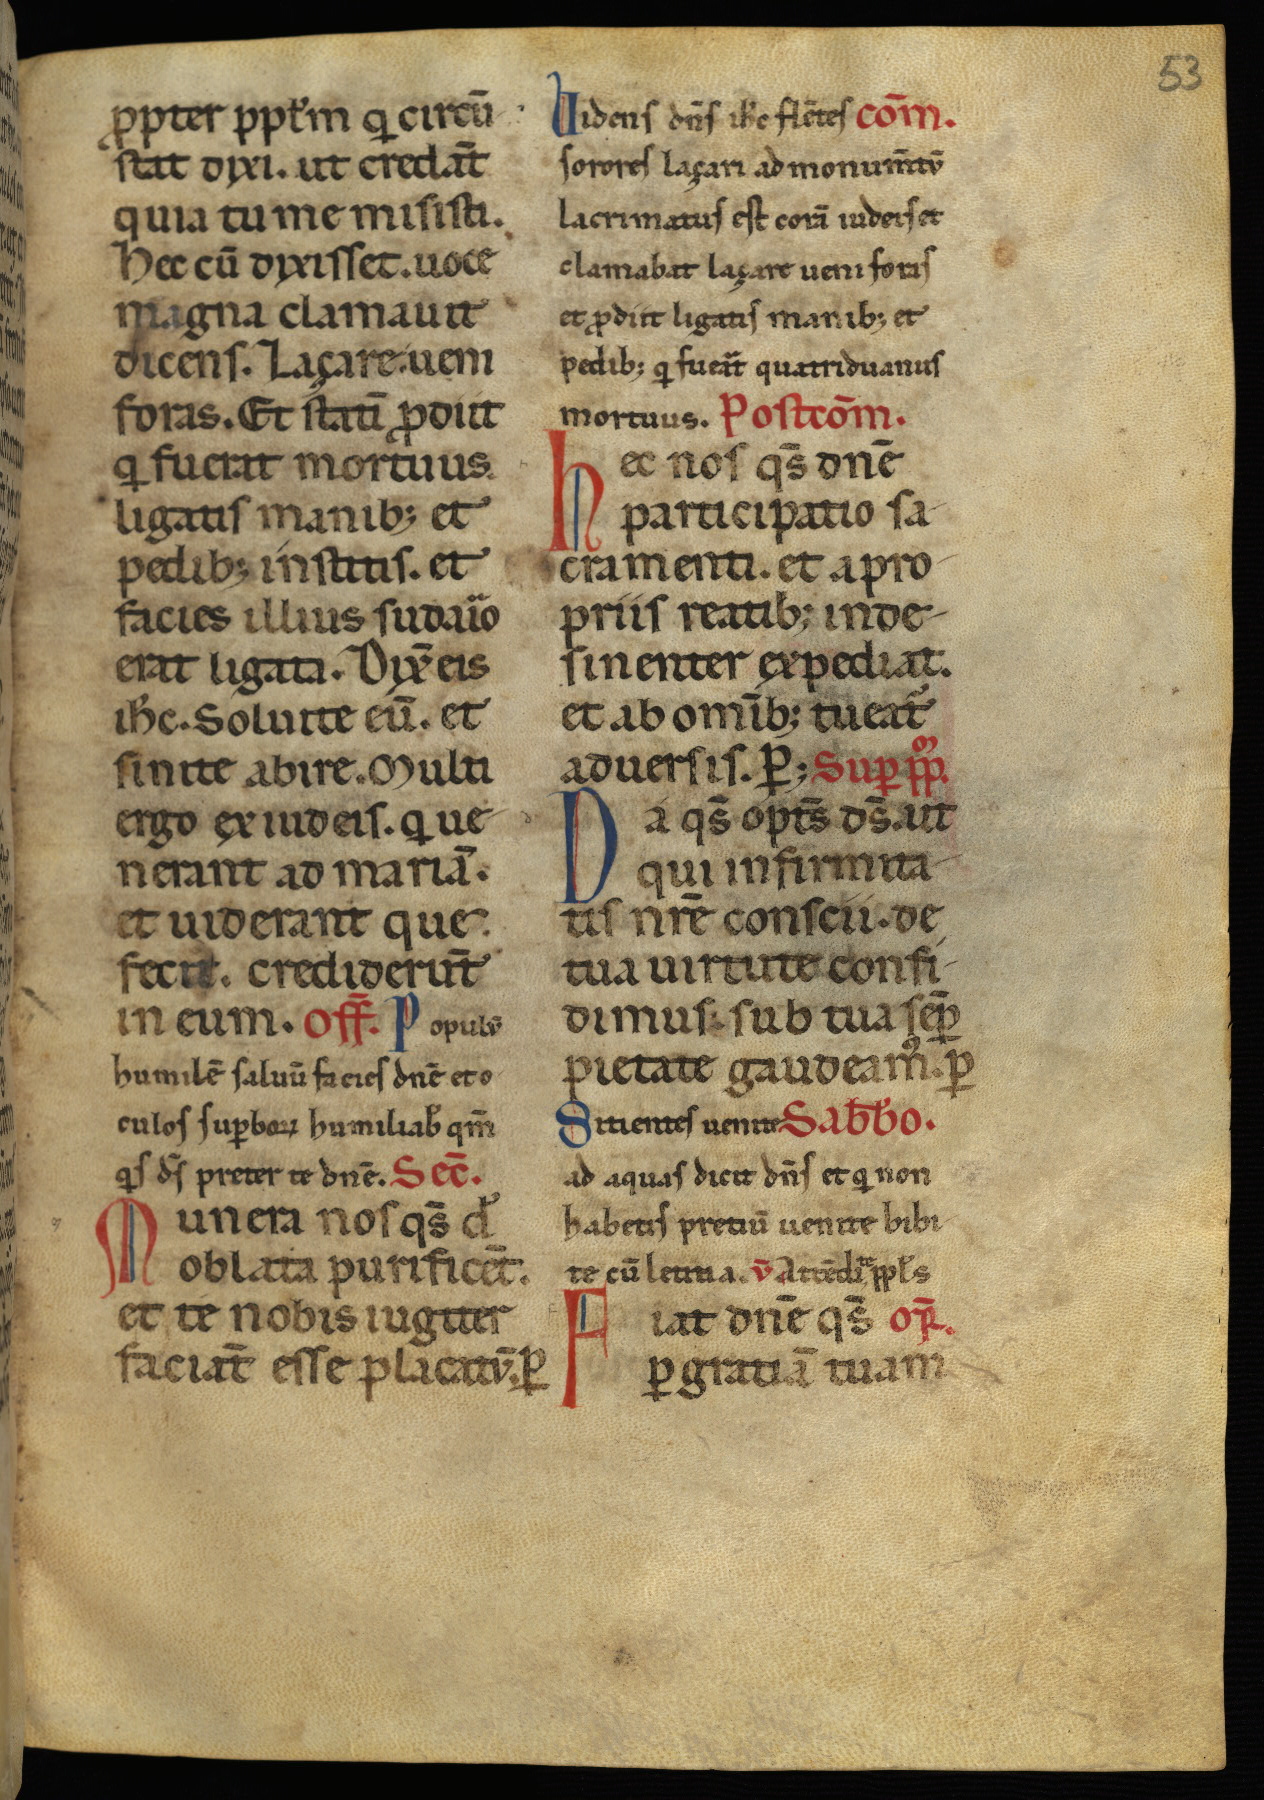 53
ꝓpter ppl̃m qi circũ
stat dixi. ut credãt
quia tu me misisti.
Hec cũ dixisset. uoce
magna clamauit
dicens. Laçare. ueni
foras. Et statĩ ꝓdiit
qi fuerat mortuus
ligatis manib; et
pedib; institis. et
facies illius sudario
erat ligata. Dix̃ eis
ihc. Soluite eũ. et
sinite abire. Multi
ergo ex iudeis. qi ue
nerant ad mariã.
et uiderant que
fecit. crediderũt
in eum. Off̃. Populũ
humilẽ saluũ facies dñe et o
culos suꝑboꝝ humiliab̃ qm̃
qis ds̃ preter te dñe. Sec̃.
Munera nos qs̃ d̃
oblata purificẽt.
et te nobis iugiter
faciãt esse placatũ. ꝑ
Uidens dñs ihc flẽtes com̃.
sorores laçari ad monum̃tũ
lacrimatus est corã iudeis et
clamabat laçare ueni foras
et ꝓdiit ligatis manib; et
pedib; qi fuerat quatriduanus
mortuus. Postcom̃.
Hec nos qs̃ dñe
participatio sa
cramenti. et a pro
priis reatib; inde
sinenter expediat.
et ab omib; tueat᷑
aduersis. ꝑ; Suꝑ pp̃.
Da qs̃ opt̃s ds̃. ut
qui infirmita
tis nr̃e conscii. de
tua uirtute confi
dimus. sub tua sẽꝑ
pietate gaudeamꝰ. ꝑ
Sitientes uenite Sabb̃o.
ad aquas dicit dñs et qi non
habetis pretiũ uenite bibi
te cũ letitia. v̄. Attẽdite ppl̃s
Fiat dñe qs̃ or̃.
ꝑ gratiã tuam